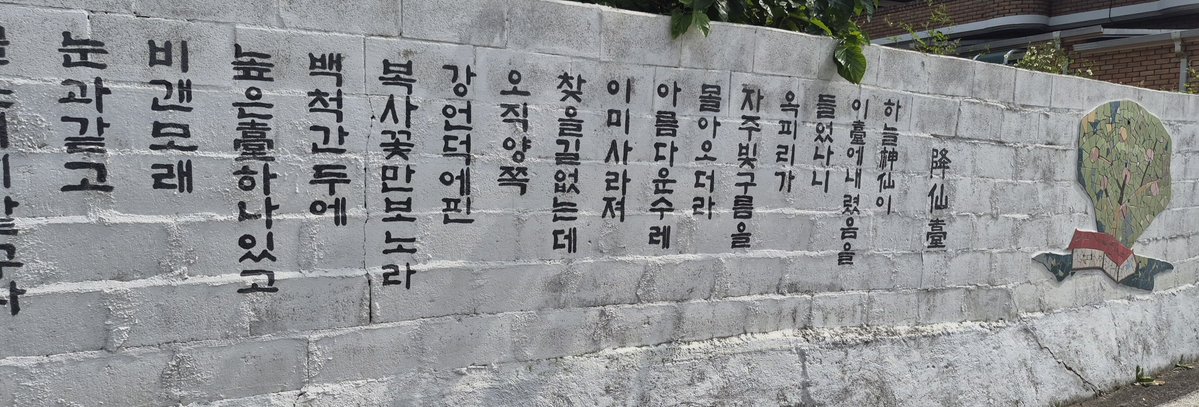 降仙臺
하늘神仙이
이臺에내렸음을
들었나니
옥피리가
자주빛구름을
몰아오더라
아름다운수레
이미사라져
찾을길없는데
오직양쪽
강언덕에핀
복사꽃만보노라
백척간두에
높은臺하나있고
비갠모래
눈과같고